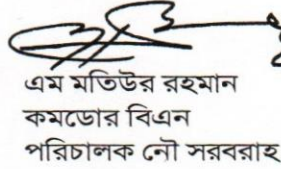 এম মতিউর রহমান
কমডোর বিএন
পরিচালক নৌ সরবরাহ